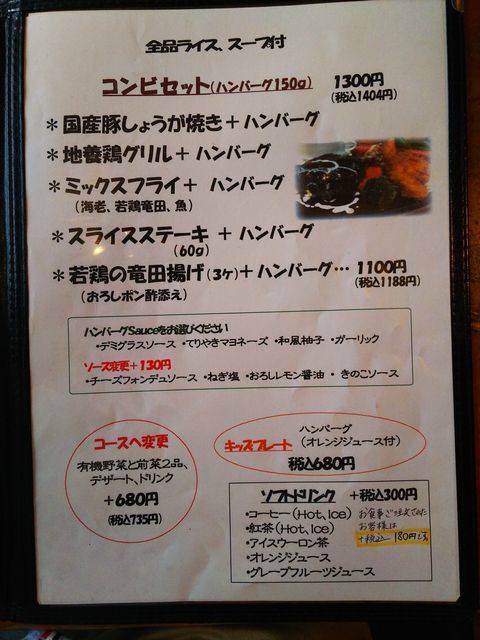 全品ライス、スープ付
コンビセット(ハンバーグ150g) 1300円
(税込1404円)
＊国産豚しょうが焼き＋ハンバーグ
＊地養鶏グリル＋ハンバーグ
＊ミックスフライ＋ハンバーグ
(海老、若鶏竜田、魚)
＊スライスステーキ＋ハンバーグ
(60g)
＊若鶏の竜田揚げ(3ケ)＋ハンバーグ… 1100円
(おろしポン酢添え) (税込1188円)
ハンバーグSauceをお選びください
・デミグラスソース ・てりやきマヨネーズ ・和風柚子 ・ガーリック
ソース変更＋130円
・チーズフォンデュソース ・ねぎ塩 ・おろしレモン醤油 ・きのこソース
コースへ変更
有機野菜と前菜2品、
デザート、ドリンク
＋680円
(税込735円)
ハンバーグ
キッズプレート (オレンジジュース付)
税込680円
ソフトドリンク ＋税込300円
・コーヒー(Hot、Ice)
・紅茶(Hot、Ice)
・アイスウーロン茶
・オレンジジュース
・グレープフルーツジュース
お食事ご注文された
お客様は
＋税込 180円です